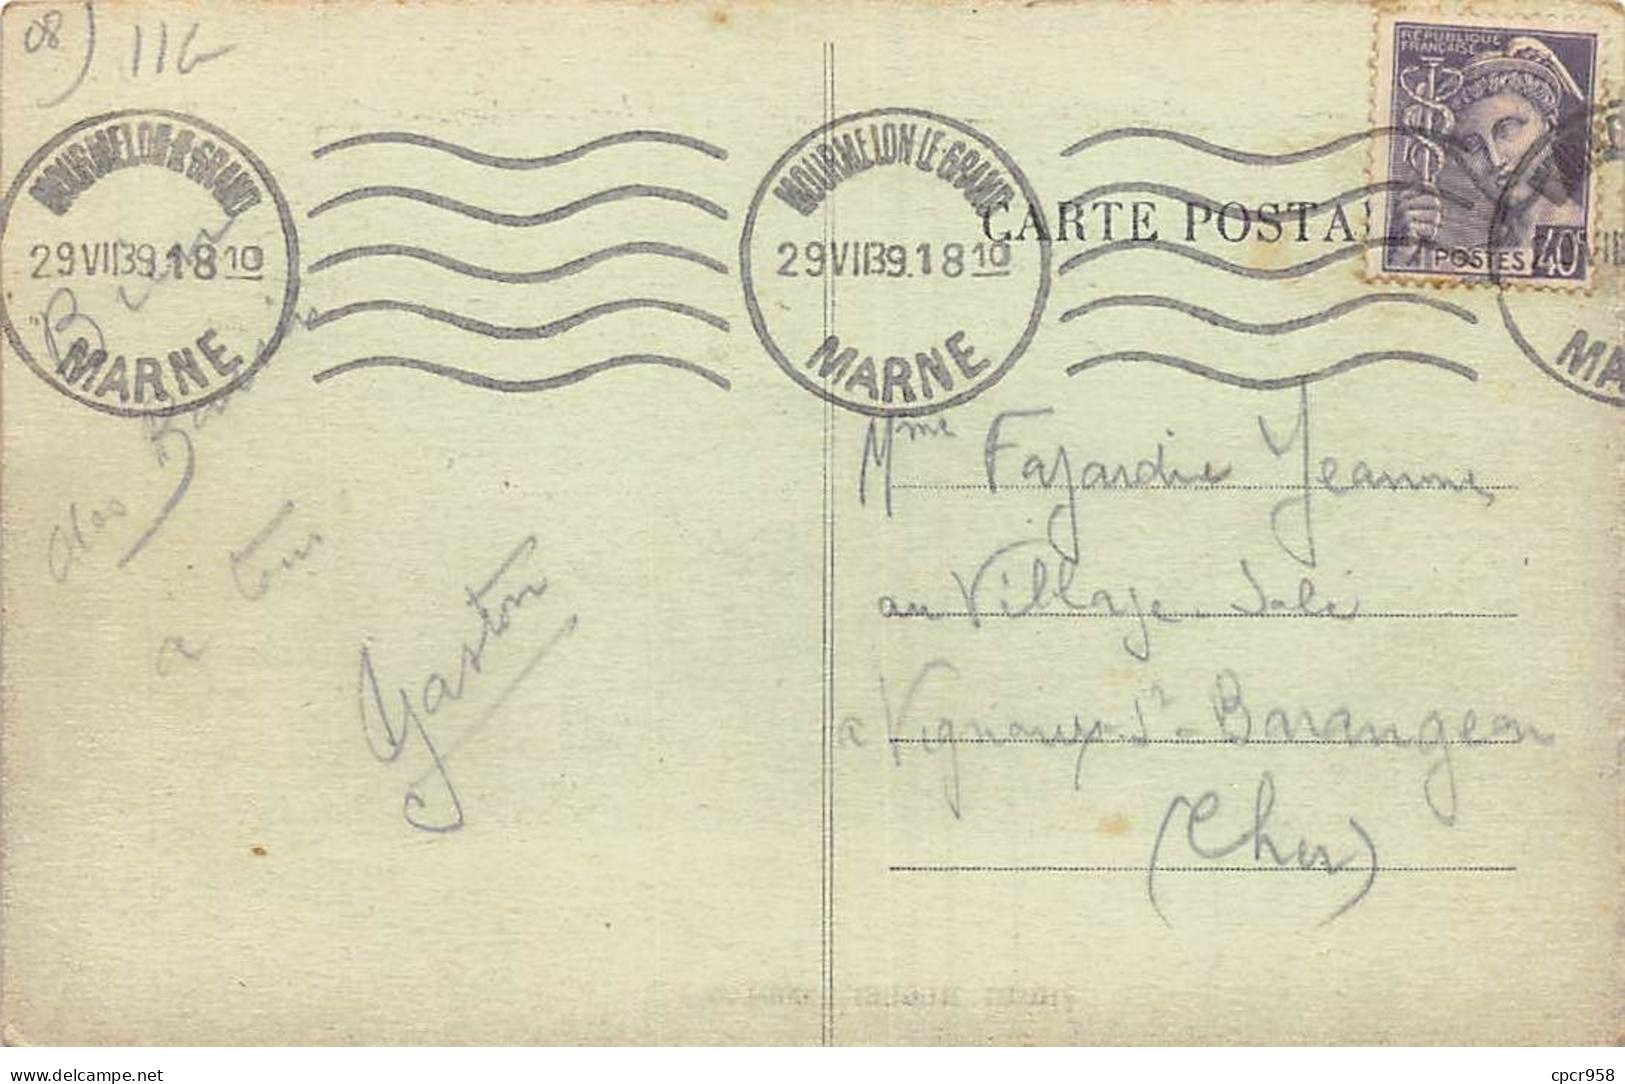 08) 11G
RÉPUBLIQUE
FRANÇAISE
POSTES 40
MOURMELON-LE-GRAND
29 VII 39. 18 10
MARNE
MOURMELON LE-GRAND
29 VII 39. 18 10
MARNE
VII
MA
CARTE POSTA
à tous
Gaston
Mme Fajardie Jeanne
au Village. Joli
a Vignoux Sr- Barangeon
(Cher)
delcampe.net
cpcr958